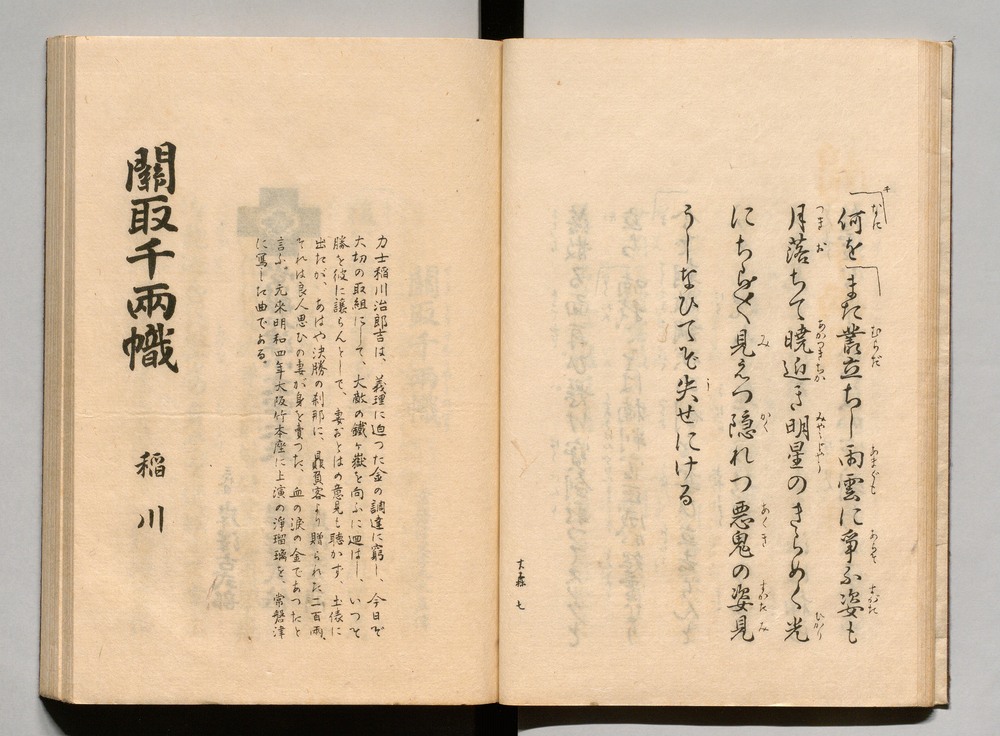 何を また叢立ちし雨雲に争ふ姿も
月落ちて暁近き明星のきらめく光
にちらと見えつ隠れつ悪鬼の姿見
うしなひてぞ失せにける
大森 七
力士稲川治郎吉は、義理に迫つた金の調達に窮し、今日ぞ
大切の取組にして、大敵の鐵ヶ嶽を向ふに廻はし、いつそ
勝を彼に譲らんとして、妻おとはの意見も聴かず、土俵に
出たが、あはや決勝の刹那に、贔負客より贈られた二百両、
それは良人思ひの妻が身を賣つた、血の涙の金であつたと
言ふ、元来明和四年大阪竹本座に上演の浄瑠璃を、常磐津
に寫した曲である。
關取千両幟 稲川